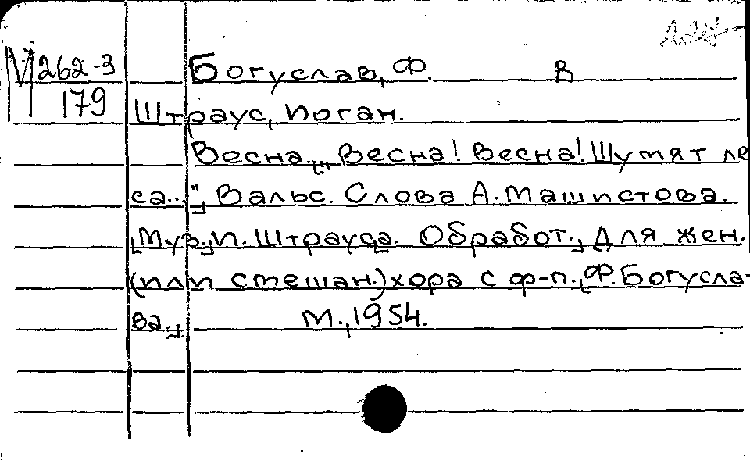 М 262-3
179
Богуслав, Ф. В
Штраус, Иоган.
Весна „Весна! Весна! Шумят ле
са..." Вальс. Слова А. Машистова.
Муз. И. Штрауса. Обработ. для жен.
(или смешан.) хора с ф-п. Ф. Богусла-
ва. М., 1954.